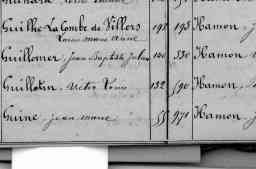 Guilhe-La Combe de Villers 198 193 Hamon
Louise marie anne
Guillomer, Jean Baptiste Julien 100 330 Hamon
Guillotin, Victor Louis 132 590 Hamon,
Guine, jean marie 55 970 Hamon,